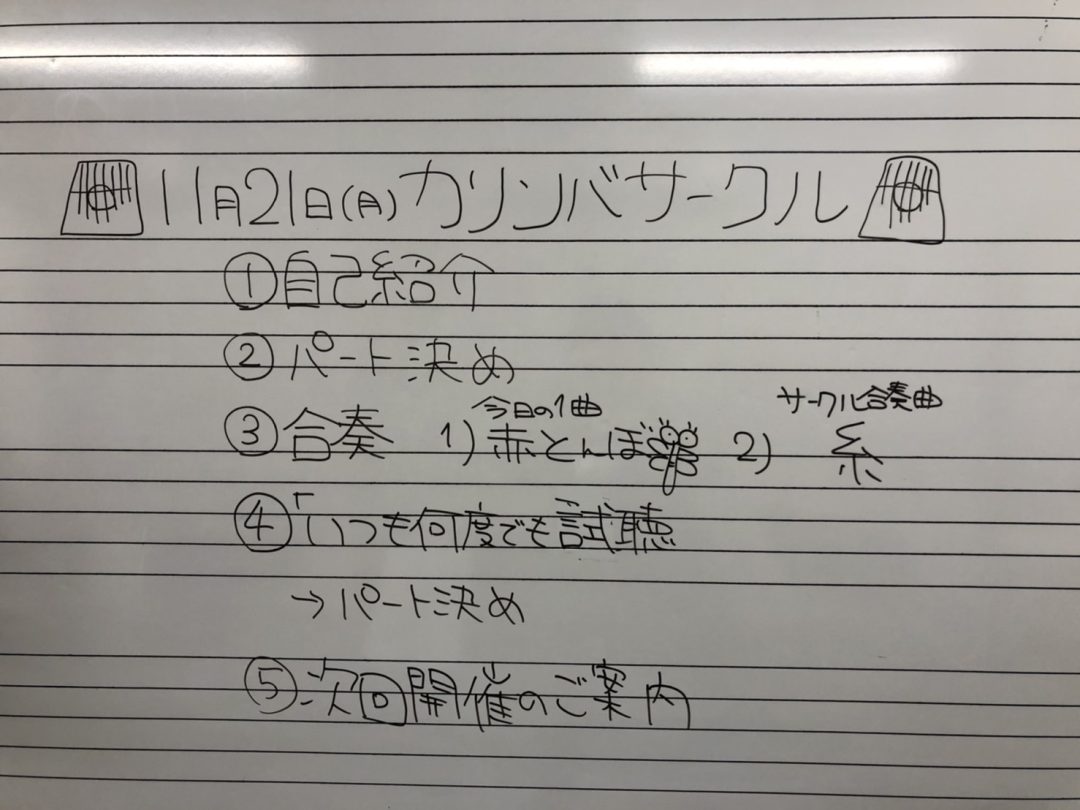 11月21日(月)カリンバサークル
①自己紹介
②パート決め
今日の1曲 サークル合奏曲
③合奏 1)赤とんぼ 2) 糸
④「いつも何度でも試聴
→パート決め
⑤次回開催のご案内